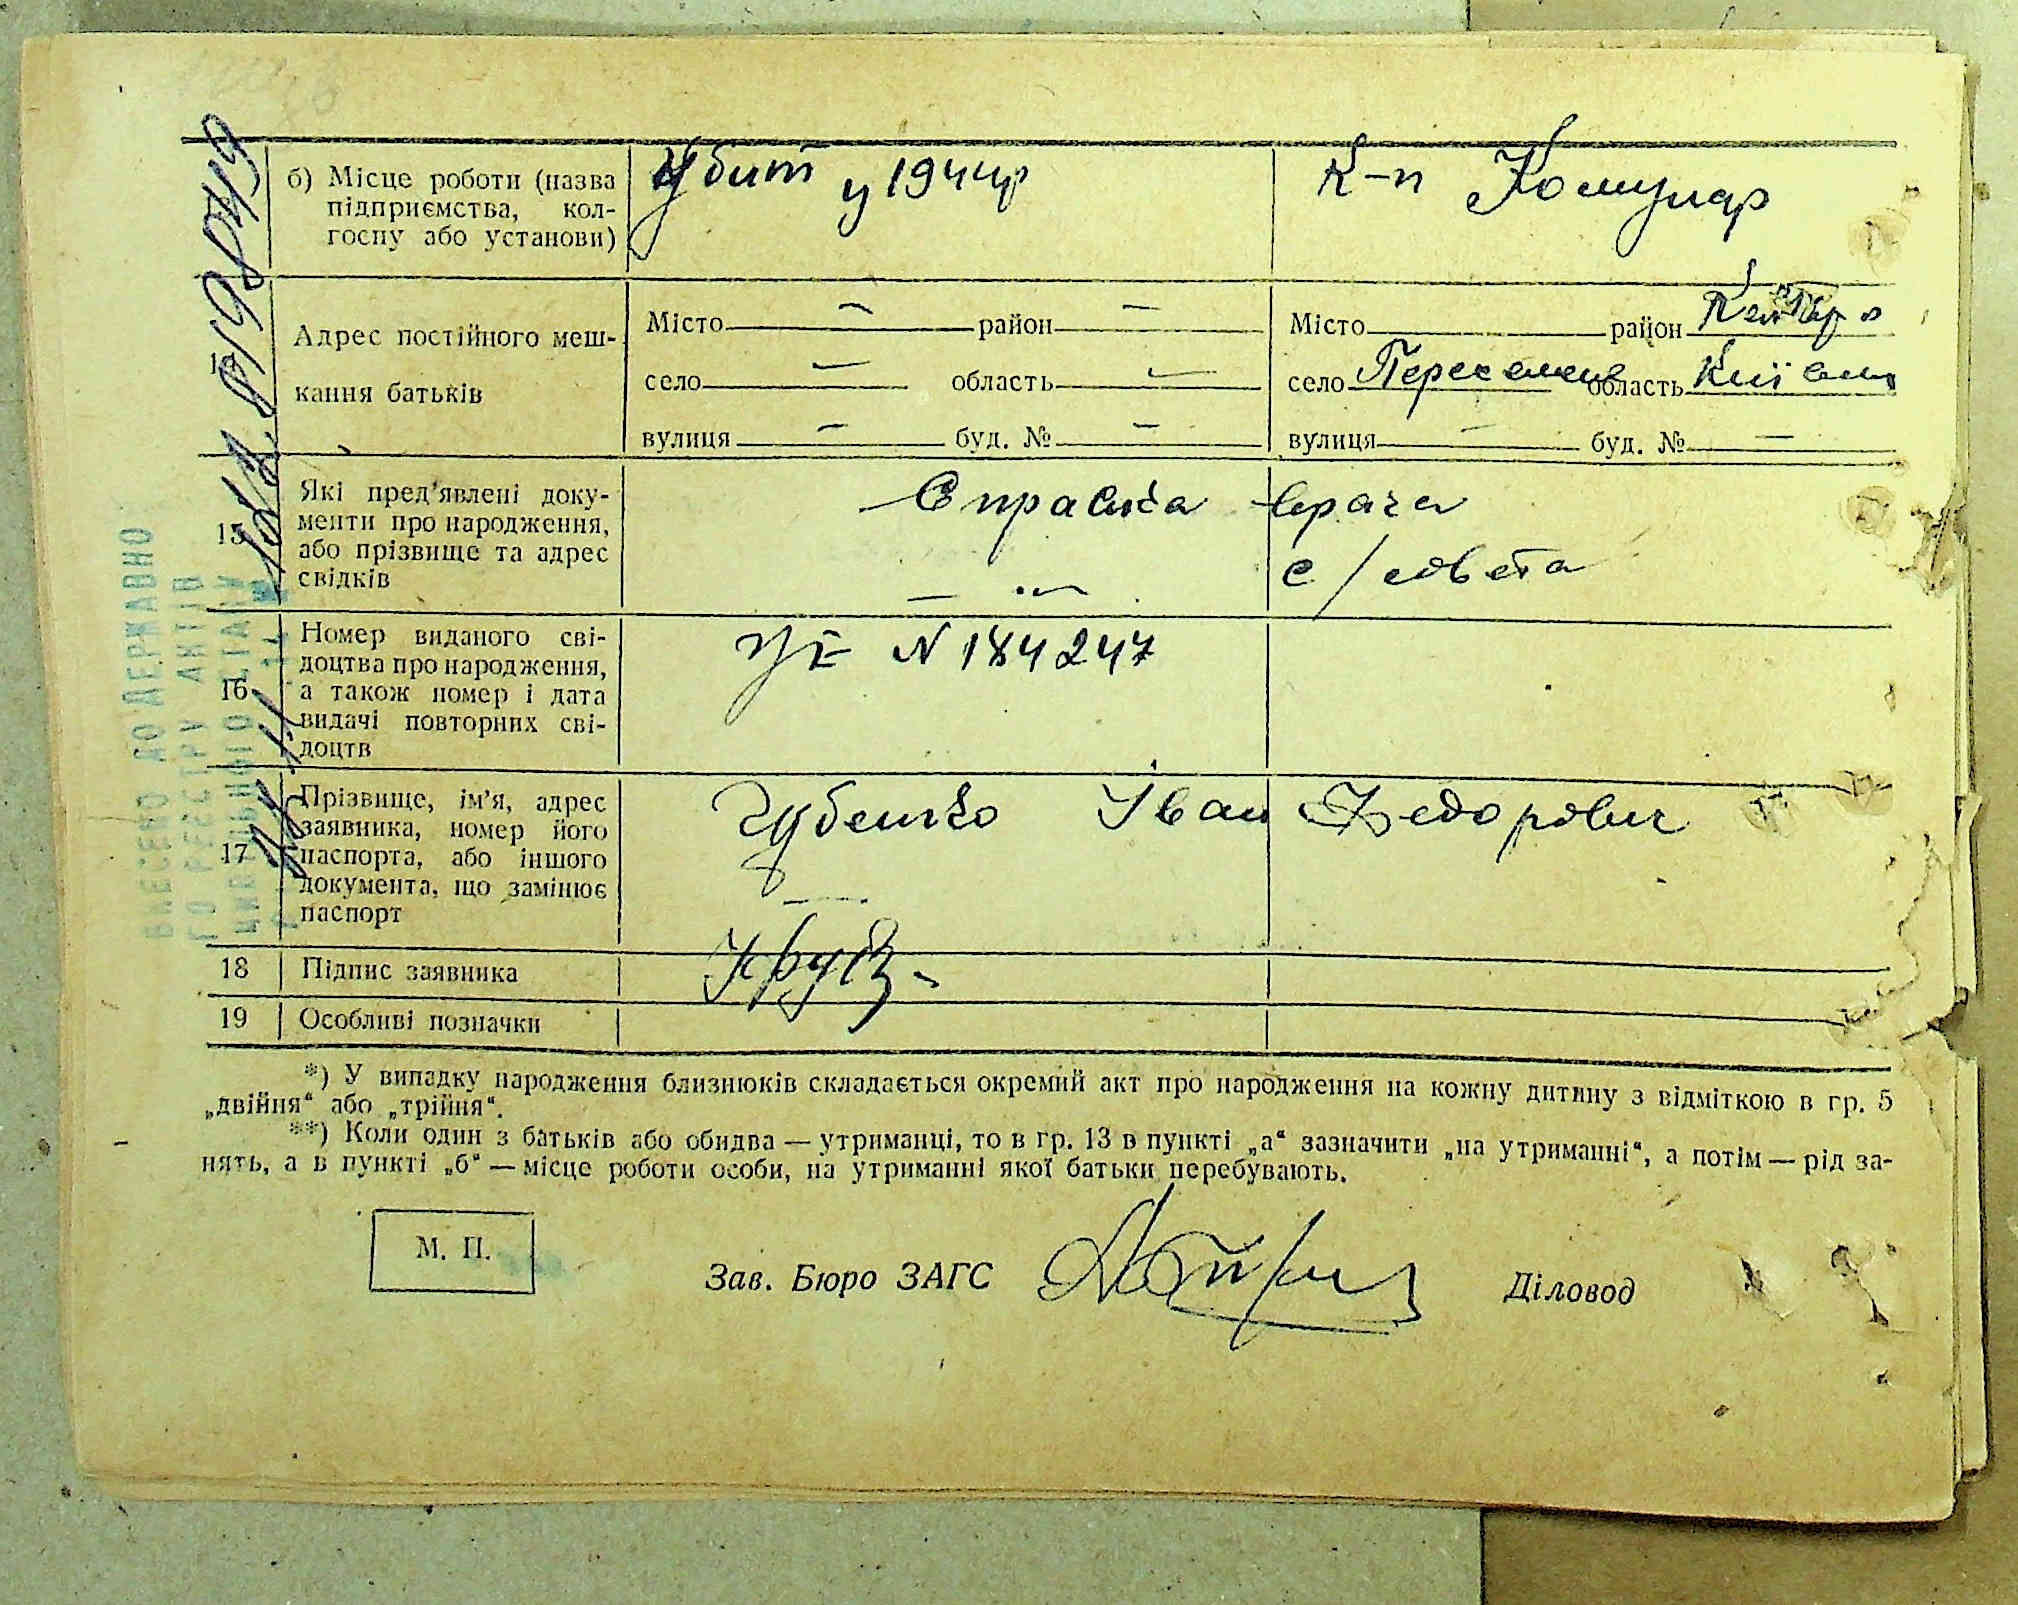 б) Місце роботи (назва
підприємства, кол-
госпу або установи)
Убит у 1944р
к-п Комунар
Адрес постійного меш-
кання батьків
Місто — район —
село — область —
вулиця — буд. № —
Місто район
село область Київськ
вулиця — буд. № —
15
Які пред’явлені доку-
менти про народження,
або прізвище та адрес
свідків
Справка врача
— „ — с/совета
16
Номер виданого сві-
доцтва про народження,
а також номер і дата
видачі повторних сві-
доцтв
N 184247
17
Прізвище, ім’я, адрес
заявника, номер його
паспорта, або іншого
документа, що замінює
паспорт
Іван Федорович
18 Підпис заявника
19 Особливі позначки
*) У випадку народження близнюків складається окремий акт про народження на кожну дитину з відміткою в гр. 5
„двійня“ або „трійня“.
**) Коли один з батьків або обидва — утриманці, то в гр. 13 в пункті „а“ зазначити „на утриманні“, а потім — рід за-
нять, а в пункті „б“ — місце роботи особи, на утриманні якої батьки перебувають.
М. П.
Зав. Бюро ЗАГС
Діловод
ВНЕСЕНО ДО ДЕРЖАВНО
ГО РЕЄСТРУ АКТІВ
ЦИВІЛЬНОГО СТАНУ